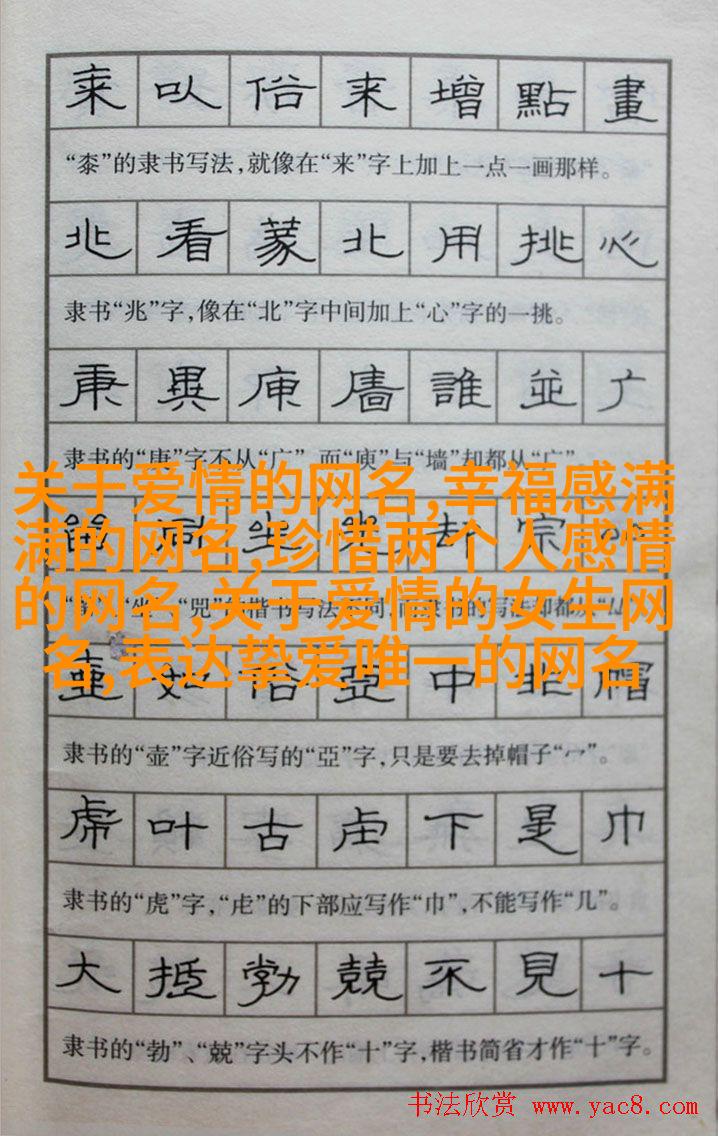 来以俗来增點畫
“桼”的隶书写法，就像在“来”字上加上一点一画那样。
兆看蒙北用挑心
隶书“兆”字，像在“北”字中间加上“心”字的一挑。
庚異庾廧誰並广
隶书的“庚”字不从“广”，而“庾”与“墙”却都从“广”。
关于爱情的网名,幸福感满
满的网名,珍惜两个人感情
的网名,关于爱情的女生网
名,表达挚爱唯一的网名
壺如俗亞中非帽
隶书的“壶”字近俗写的“亞”字，只是要去掉帽子“宀”。
虎叶古虍下是巾
隶书的“虎”字，“虍”的下部应写作“巾”，不能写作“几”。
大抵勃兢不見十
隶书的“勃”、“兢”字头不作“十”字，楷书简省才作“十”字。
书法欣赏 www.yac8.com